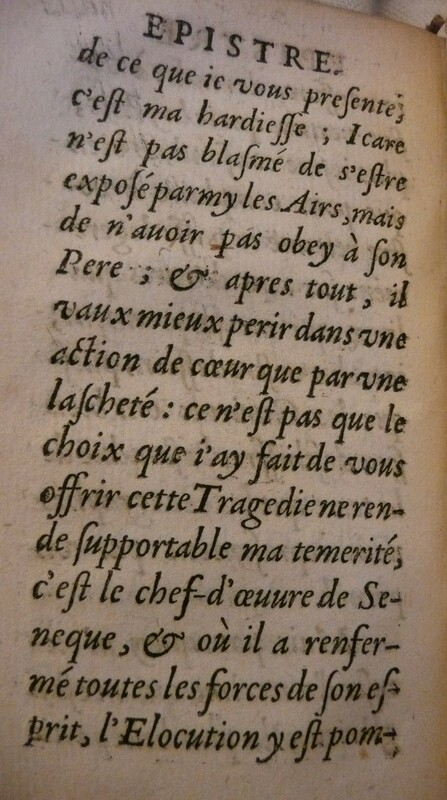 EPISTRE.
de ce que ie vous presente,
c'eſt ma hardieſſe ; Icare
n'eſt pas blaſmé de s'eſtre
expoſé parmy les Airs, mais
de n'auoir pas obey à ſon
Pere ; & apres tout, il
vaux mieux perir dans vne
action de cœur que par vne
laſcheté : ce n'eſt pas que le
choix que i'ay fait de vous
offrir cette Tragedie ne ren-
de ſupportable ma temerité,
c'eſt le chef-d'œuure de Se-
neque, & où il a renfer-
mé toutes les forces de ſon eſ-
prit, l'Elocution y eſt pom-